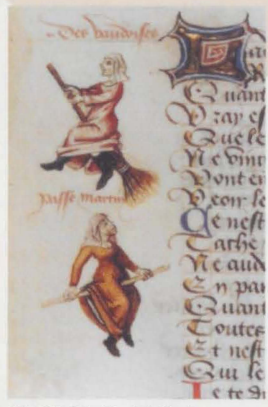 Des vaudoises
passe martin
Quant
Vray es
Que le
Ne vint
Dont en
Veoir le
Ce nest
Cathe
Ne aud
En pa
Quant
Toutes
Et nest
Qui le